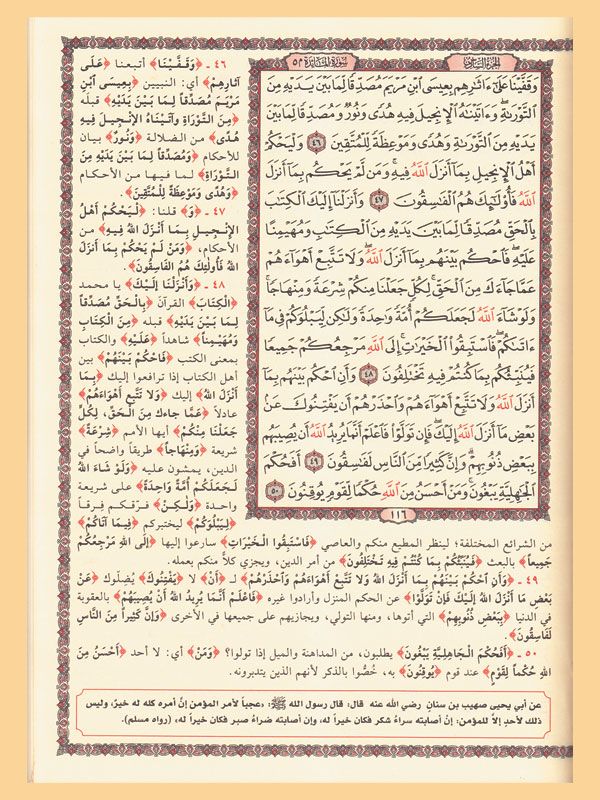 الجزء السادس
سورة المائدة ٥٢
وَقَفَّيْنَا عَلَىٰٓ ءَاثَٰرِهِم بِعِيسَى ٱبْنِ مَرْيَمَ مُصَدِّقًا لِّمَا بَيْنَ يَدَيْهِ مِنَ
ٱلتَّوْرَىٰةِ ۖ وَءَاتَيْنَٰهُ ٱلْإِنجِيلَ فِيهِ هُدًى وَنُورٌ وَمُصَدِّقًا لِّمَا بَيْنَ
يَدَيْهِ مِنَ ٱلتَّوْرَىٰةِ وَهُدًى وَمَوْعِظَةً لِّلْمُتَّقِينَ ٤٦ وَلْيَحْكُمْ
أَهْلُ ٱلْإِنجِيلِ بِمَآ أَنزَلَ ٱللَّهُ فِيهِ ۚ وَمَن لَّمْ يَحْكُم بِمَآ أَنزَلَ
ٱللَّهُ فَأُو۟لَٰٓئِكَ هُمُ ٱلْفَٰسِقُونَ ٤٧ وَأَنزَلْنَآ إِلَيْكَ ٱلْكِتَٰبَ
بِٱلْحَقِّ مُصَدِّقًا لِّمَا بَيْنَ يَدَيْهِ مِنَ ٱلْكِتَٰبِ وَمُهَيْمِنًا
عَلَيْهِ ۖ فَٱحْكُم بَيْنَهُم بِمَآ أَنزَلَ ٱللَّهُ ۖ وَلَا تَتَّبِعْ أَهْوَآءَهُمْ
عَمَّا جَآءَكَ مِنَ ٱلْحَقِّ ۚ لِكُلٍّ جَعَلْنَا مِنكُمْ شِرْعَةً وَمِنْهَاجًا ۚ
وَلَوْ شَآءَ ٱللَّهُ لَجَعَلَكُمْ أُمَّةً وَٰحِدَةً وَلَٰكِن لِّيَبْلُوَكُمْ فِى مَآ
ءَاتَىٰكُمْ ۖ فَٱسْتَبِقُوا۟ ٱلْخَيْرَٰتِ ۚ إِلَى ٱللَّهِ مَرْجِعُكُمْ جَمِيعًا
فَيُنَبِّئُكُم بِمَا كُنتُمْ فِيهِ تَخْتَلِفُونَ ٤٨ وَأَنِ ٱحْكُم بَيْنَهُم بِمَآ
أَنزَلَ ٱللَّهُ وَلَا تَتَّبِعْ أَهْوَآءَهُمْ وَٱحْذَرْهُمْ أَن يَفْتِنُوكَ عَنۢ
بَعْضِ مَآ أَنزَلَ ٱللَّهُ إِلَيْكَ ۖ فَإِن تَوَلَّوْا۟ فَٱعْلَمْ أَنَّمَا يُرِيدُ ٱللَّهُ أَن يُصِيبَهُم
بِبَعْضِ ذُنُوبِهِمْ ۗ وَإِنَّ كَثِيرًا مِّنَ ٱلنَّاسِ لَفَٰسِقُونَ ٤٩ أَفَحُكْمَ
ٱلْجَٰهِلِيَّةِ يَبْغُونَ ۚ وَمَنْ أَحْسَنُ مِنَ ٱللَّهِ حُكْمًا لِّقَوْمٍ يُوقِنُونَ ٥٠
١١٦
٤٦ - ﴿وَقَفَّيْنَا﴾ أتبعنا ﴿عَلَى
آثارِهِمْ﴾ أي: النبيين ﴿بِعِيسَى ابْنِ
مَرْيَمَ مُصَدِّقاً لِمَا بَيْنَ يَدَيْهِ﴾ قبله
﴿مِنَ التَّوْرَاةِ وَآتَيْنَاهُ الإِنْجِيلَ فِيهِ
هُدًى﴾ من الضلالة ﴿وَنُورٌ﴾ بيان
للأحكام ﴿وَمُصَدِّقاً لِمَا بَيْنَ يَدَيْهِ مِنَ
التَّوْرَاةِ﴾ لما فيها من الأحكام
﴿وَهُدًى وَمَوْعِظَةً لِلْمُتَّقِينَ﴾.
٤٧ - ﴿وَ﴾ قلنا: ﴿لْيَحْكُمْ أَهْلُ
الإِنْجِيلِ بِمَا أَنْزَلَ اللهُ فِيهِ﴾ من
الأحكام، ﴿وَمَنْ لَمْ يَحْكُمْ بِمَا أَنْزَلَ
اللهُ فَأُولٰئِكَ هُمُ الْفَاسِقُونَ﴾.
٤٨ - ﴿وَأَنْزَلْنَا إِلَيْكَ﴾ يا محمد
﴿الْكِتَابَ﴾ القرآن ﴿بِالْحَقِّ مُصَدِّقاً
لِمَا بَيْنَ يَدَيْهِ﴾ قبله ﴿مِنَ الكِتَابِ
وَمُهَيْمِناً﴾ شاهداً ﴿عَلَيْهِ﴾ والكتاب
بمعنى الكتب ﴿فَاحْكُمْ بَيْنَهُمْ﴾ بين
أهل الكتاب إذا ترافعوا إليك ﴿بِمَا
أَنْزَلَ اللهُ﴾ إليك ﴿وَلَا تَتَّبِعْ أَهْوَاءَهُمْ﴾
عادلاً ﴿عَمَّا جاءَكَ مِنَ الْحَقِّ، لِكُلٍّ
جَعَلْنَا مِنْكُمْ﴾ أيها الأمم ﴿شِرْعَةً﴾
شريعة ﴿وَمِنْهَاجاً﴾ طريقاً واضحاً في
الدين، يمشون عليه ﴿وَلَوْ شَاءَ اللهُ
لَجَعَلَكُمْ أُمَّةً وَاحِدَةً﴾ على شريعة
واحدة ﴿وَلٰكِنْ﴾ فرّقكم فِرقاً
﴿لِيَبْلُوَكُمْ﴾ ليختبركم ﴿فِيمَا آتَاكُمْ﴾
من الشرائع المختلفة؛ لينظر المطيع منكم والعاصي ﴿فَاسْتَبِقُوا الْخَيْرَاتِ﴾ سارعوا إليها ﴿إِلَى اللهِ مَرْجِعُكُمْ
جَمِيعاً﴾ بالبعث ﴿فَيُنَبِّئُكُمْ بِمَا كُنْتُمْ فِيهِ تَخْتَلِفُونَ﴾ من أمر الدين، ويجزي كلاً منكم بعمله.
٤٩ - ﴿وَأَنِ احْكُمْ بَيْنَهُمْ بِمَا أَنْزَلَ اللهُ وَلَا تَتَّبِعْ أَهْوَاءَهُمْ وَاحْذَرْهُمْ﴾ لـ ﴿أَنْ﴾ لا ﴿يَفْتِنُوكَ﴾ يُضِلّوك ﴿عَنْ
بَعْضِ مَا أَنْزَلَ اللهُ إِلَيْكَ فَإِنْ تَوَلَّوْا﴾ عن الحكم المنزل وأرادوا غيره ﴿فَاعْلَمْ أَنَّمَا يُرِيدُ اللهُ أَنْ يُصِيبَهُمْ﴾ بالعقوبة
في الدنيا ﴿بِبَعْضِ ذُنُوبِهِمْ﴾ التي أتوها، ومنها التولي، ويجازيهم على جميعها في الأخرى ﴿وَإِنَّ كَثِيراً مِنَ النَّاسِ
لَفَاسِقُونَ﴾.
٥٠ - ﴿أَفَحُكْمَ الْجَاهِلِيَّةِ يَبْغُونَ﴾ يطلبون، من المداهنة والميل إذا تولوا؟ ﴿وَمَنْ﴾ أي: لا أحد ﴿أَحْسَنُ مِنَ
اللهِ حُكْماً لِقَوْمٍ﴾ عند قوم ﴿يُوقِنُونَ﴾ به، خُصُّوا بالذكر لأنهم الذين يتدبرونه.
عن أبي يحيى صهيب بن سنان رضي الله عنه قال: قال رسول الله ﷺ: «عجباً لأمر المؤمن إنَّ أمره كله له خيرٌ، وليس
ذلك لأحدٍ إلاَّ للمؤمن: إنْ أصابته سراءُ شكر فكان خيراً له، وإن أصابته ضراءُ صبر فكان خيراً له»، (رواه مسلم).